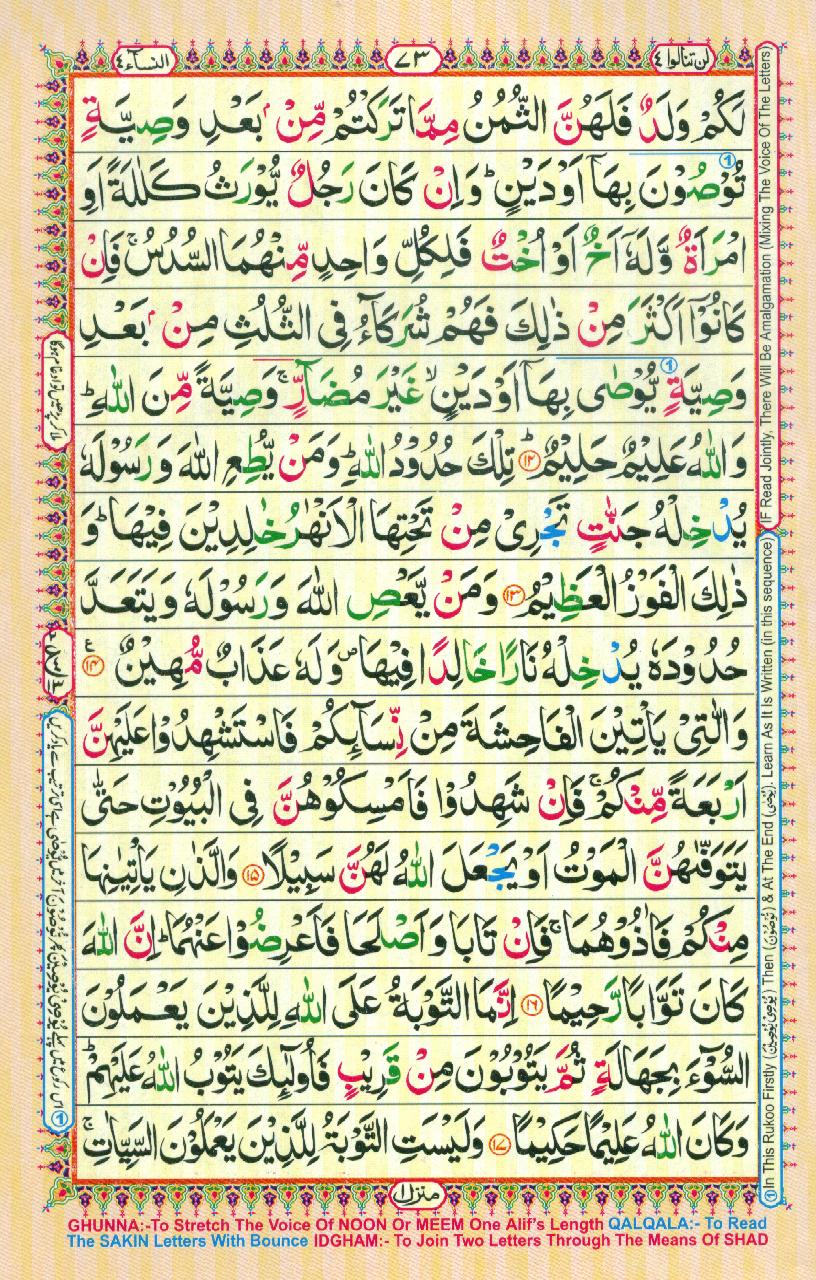 لن تنالوا ٤
٧٣
النسآء ٤
لَكُمْ وَلَدٌ فَلَهُنَّ الثُّمُنُ مِمَّا تَرَكْتُمْ مِّنْۢ بَعْدِ وَصِيَّةٍ
تُوْصُوْنَ بِهَاۤ اَوْ دَيْنٍ ؕ وَاِنْ كَانَ رَجُلٌ يُّوْرَثُ كَلٰلَةً اَوِ
امْرَاَةٌ وَّلَهٗۤ اَخٌ اَوْ اُخْتٌ فَلِكُلِّ وَاحِدٍ مِّنْهُمَا السُّدُسُ ۚ فَاِنْ
كَانُوْۤا اَكْثَرَ مِنْ ذٰلِكَ فَهُمْ شُرَكَآءُ فِى الثُّلُثِ مِنْۢ بَعْدِ
وَصِيَّةٍ يُّوْصٰى بِهَاۤ اَوْ دَيْنٍ ۙ غَيْرَ مُضَآرٍّ ۚ وَصِيَّةً مِّنَ اللّٰهِ ؕ
وَاللّٰهُ عَلِيْمٌ حَلِيْمٌ ؕ ۱۲ تِلْكَ حُدُوْدُ اللّٰهِ ؕ وَمَنْ يُّطِعِ اللّٰهَ وَرَسُوْلَهٗ
يُدْخِلْهُ جَنّٰتٍ تَجْرِىْ مِنْ تَحْتِهَا الْاَنْهٰرُ خٰلِدِيْنَ فِيْهَا ؕ وَ
ذٰلِكَ الْفَوْزُ الْعَظِيْمُ ۱۳ وَمَنْ يَّعْصِ اللّٰهَ وَرَسُوْلَهٗ وَيَتَعَدَّ
حُدُوْدَهٗ يُدْخِلْهُ نَارًا خَالِدًا فِيْهَا ۪ وَلَهٗ عَذَابٌ مُّهِيْنٌ ۱۴ ع
وَالّٰتِىْ يَاْتِيْنَ الْفَاحِشَةَ مِنْ نِّسَآئِكُمْ فَاسْتَشْهِدُوْا عَلَيْهِنَّ
اَرْبَعَةً مِّنْكُمْ ۚ فَاِنْ شَهِدُوْا فَاَمْسِكُوْهُنَّ فِى الْبُيُوْتِ حَتّٰى
يَتَوَفّٰىهُنَّ الْمَوْتُ اَوْ يَجْعَلَ اللّٰهُ لَهُنَّ سَبِيْلًا ۱۵ وَالَّذٰنِ يَاْتِيٰنِهَا
مِنْكُمْ فَاٰذُوْهُمَا ۚ فَاِنْ تَابَا وَاَصْلَحَا فَاَعْرِضُوْا عَنْهُمَا ؕ اِنَّ اللّٰهَ
كَانَ تَوَّابًا رَّحِيْمًا ۱۶ اِنَّمَا التَّوْبَةُ عَلَى اللّٰهِ لِلَّذِيْنَ يَعْمَلُوْنَ
السُّوْٓءَ بِجَهَالَةٍ ثُمَّ يَتُوْبُوْنَ مِنْ قَرِيْبٍ فَاُولٰٓئِكَ يَتُوْبُ اللّٰهُ عَلَيْهِمْ ؕ
وَكَانَ اللّٰهُ عَلِيْمًا حَكِيْمًا ۱۷ وَلَيْسَتِ التَّوْبَةُ لِلَّذِيْنَ يَعْمَلُوْنَ السَّيِّاٰتِ ۚ
منزل ۱
① In This Rukoo Firstly (يُوْصِىْ يُوْصِيْنَ) Then (تُوْصُوْنَ) & At The End (يُوْصٰى). Learn As It Is Written (in this sequence)
IF Read Jointly, There Will Be Amalgamation (Mixing The Voice Of The Letters)
GHUNNA:-To Stretch The Voice Of NOON Or MEEM One Alif's Length QALQALA:- To Read
The SAKIN Letters With Bounce IDGHAM:- To Join Two Letters Through The Means Of SHAD